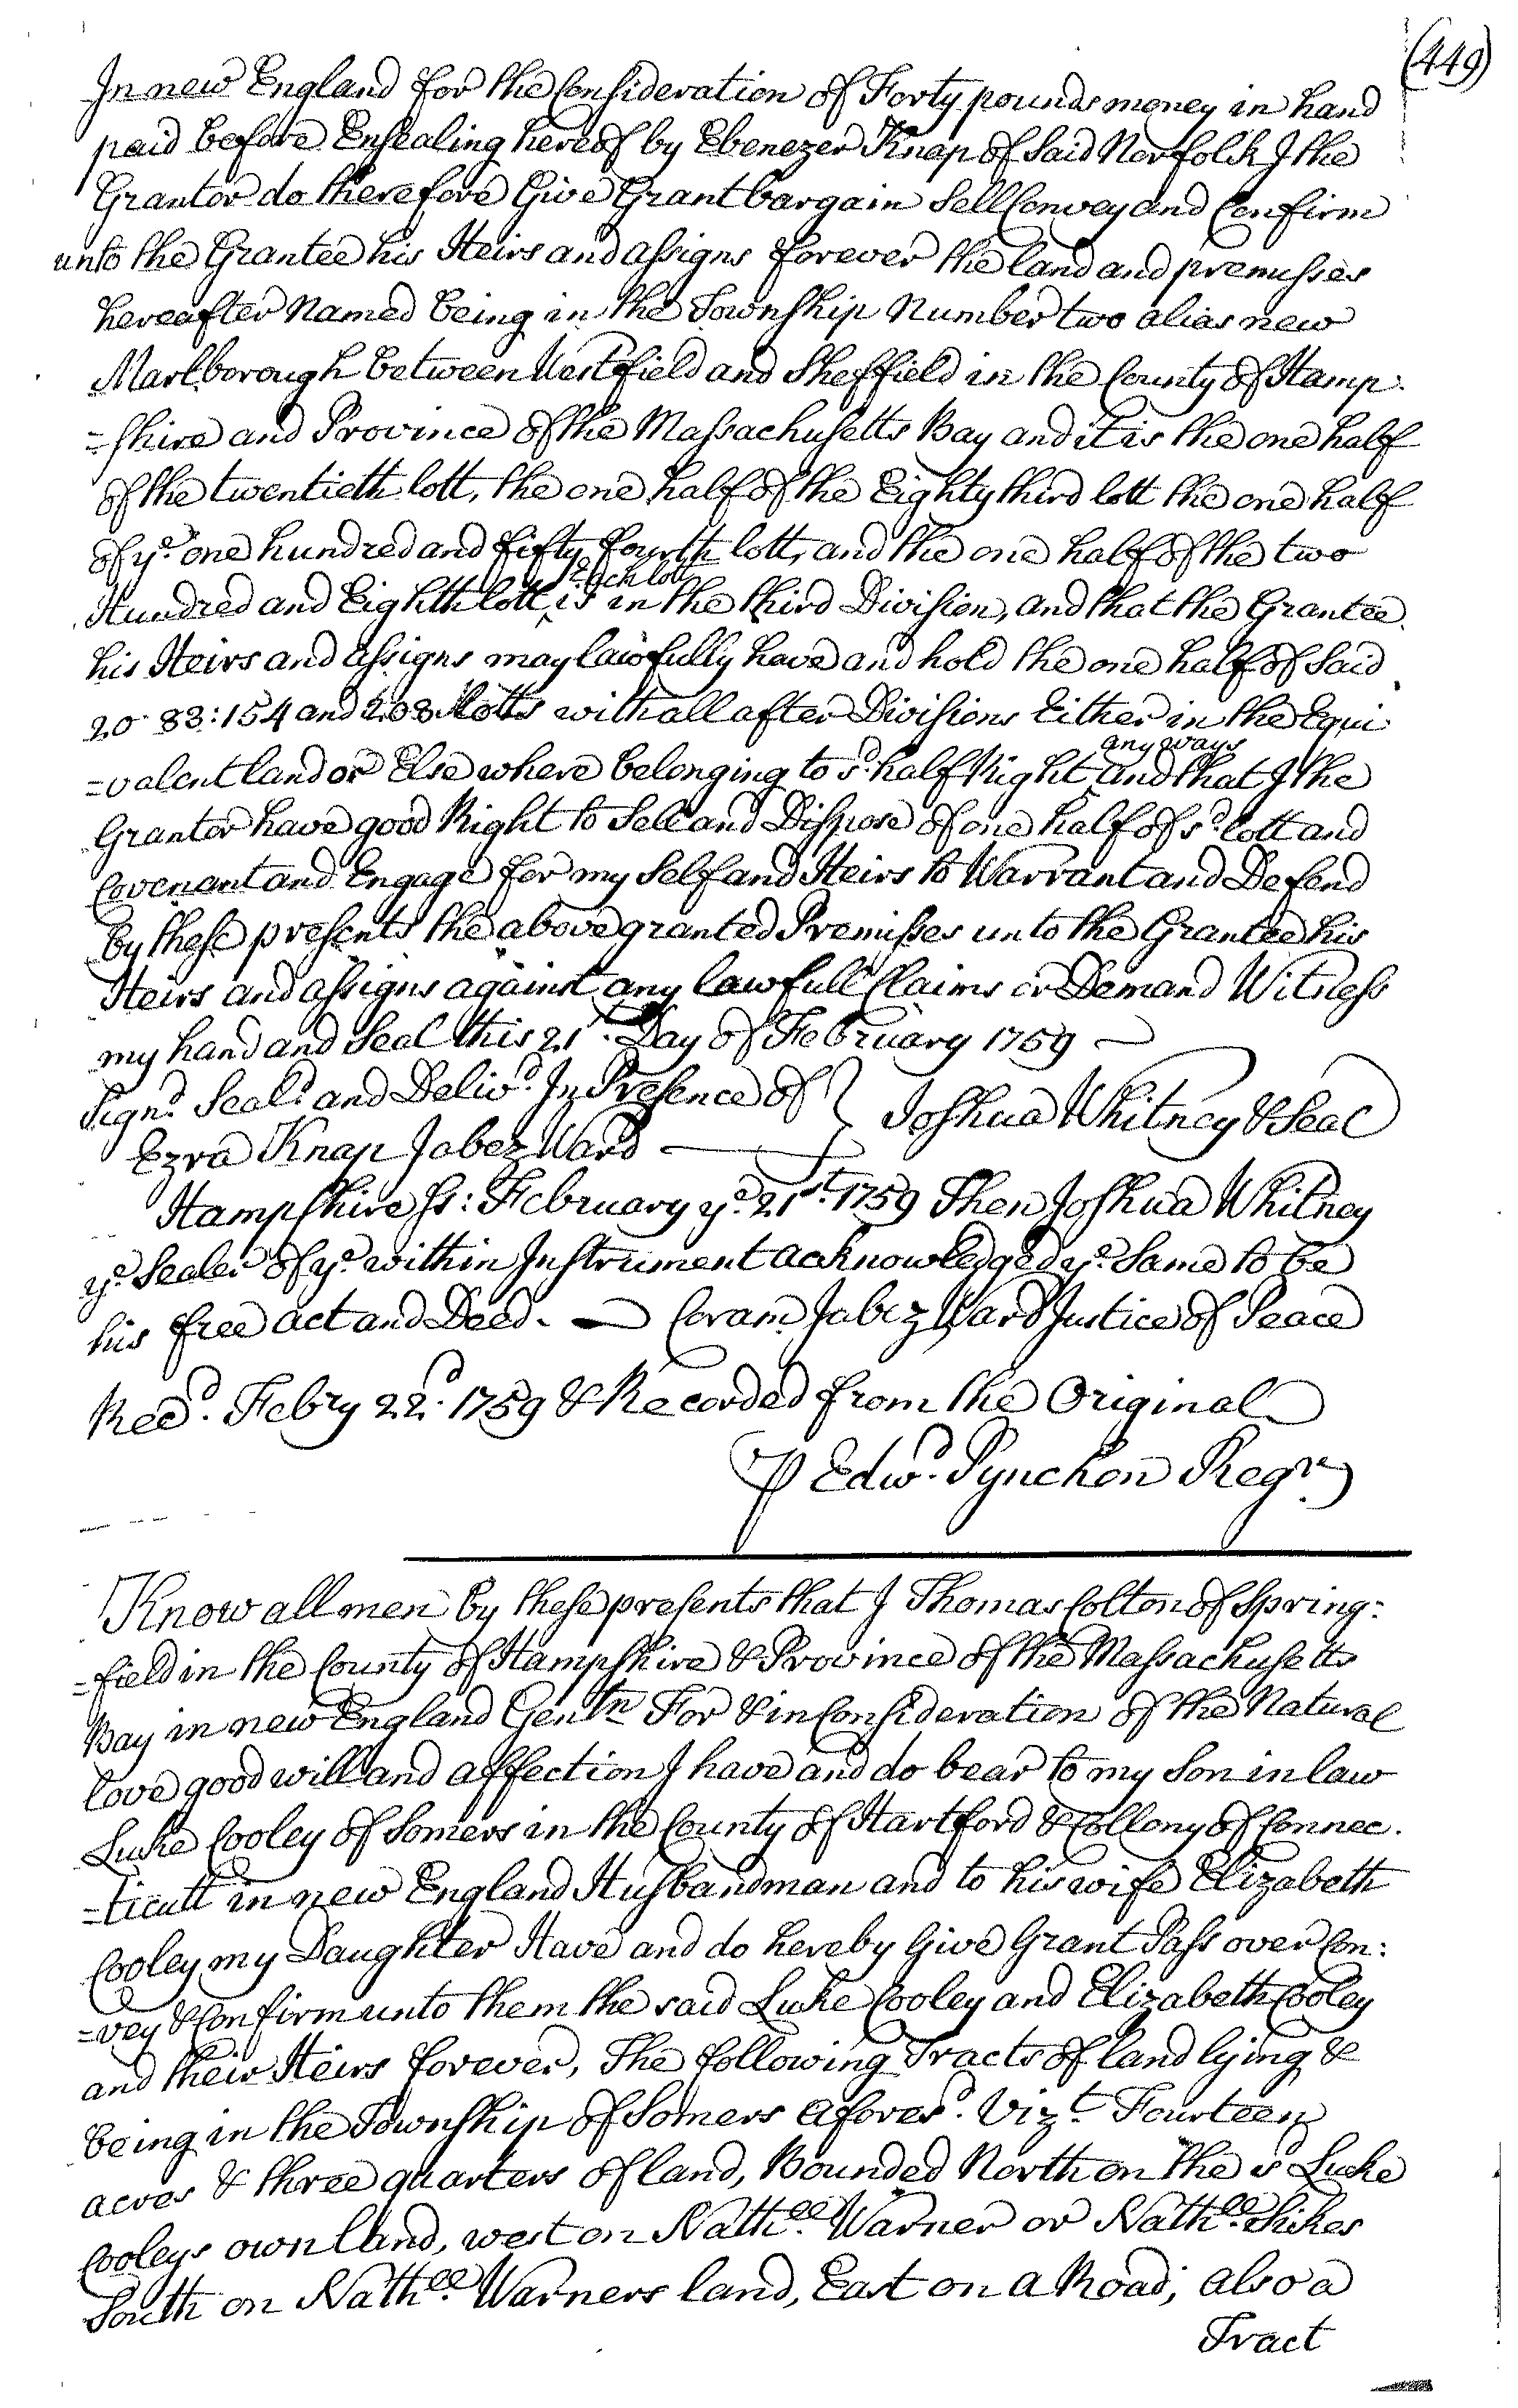 (449)
In new England for the Consideration of Forty pounds money in hand
paid before Ensealing hereof by Ebenezer Knap of Said Norfolk I the
Grantor do therefore Give Grant bargain Sell Convey and Confirm
unto the Grantee his Heirs and assigns forever the land and premisses
hereafter Named being in the Township Number two alias new
Marlborough between Westfield and Sheffield in the County of Hamp-
=shire and Province of the Massachusetts Bay and it is the one half
of the twentieth lott, the one half of the Eighty third lott the one half
of ye one hundred and fifty fourth lott, and the one half of the two
Each lott
Hundred and Eighth lott ‸ is in the third Division, and that the Grantee
his Heirs and assigns may lawfully have and hold the one half of Said
20 83: 154 and 208 lotts with all after Divisions Either in the Equi
any ways
=valent land or Else where belonging to sd half Right ‸ and that I the
Grantor have good Right to Sell and Dispose of one half of sd lott and
Covenant and Engage for my Self and Heirs to Warrant and Defend
by these presents the above granted Premisses unto the Grantee his
Heirs and assigns against any lawfull Claims or Demand Witness
my hand and Seal this 21st Day of February 1759 —
Signd Seald and Delivd In Presence of } Joshua Whitney & Seal
Ezra Knap Jabez Ward —
Hampshire ss: February ye 21st 1759 Then Joshua Whitney
ye Sealer of ye within Instrument acknowledged ye Same to be
his free act and Deed. — Coram Jabez Ward Justice of Peace
Recd. Febry 22d. 1759 & Recorded from the Original
P Edwd. Pynchon Regr
Know all men by these presents that I Thomas Colton of Spring-
=field in the County of Hampshire & Province of the Massachusetts
Bay in new England Gentn For & in Consideration of the Natural
love good will and affection I have and do bear to my Son in law
Luke Cooley of Somers in the County of Hartford & Collony of Connec-
=ticutt in new England Husbandman and to his wife Elizabeth
Cooley my Daughter Have and do hereby Give Grant Pass over Con:
=vey & Confirm unto them the said Luke Cooley and Elizabeth Cooley
and their Heirs forever, The following Tracts of land lying &
being in the Township of Somers aforesd. Vizt. Fourteen
acres & three quarters of land, Bounded North on the sd Luke
Cooleys own land, west on Nathll. Warner or Nathll. Sikes
South on Nathll. Warners land, East on a Road; also a
Tract